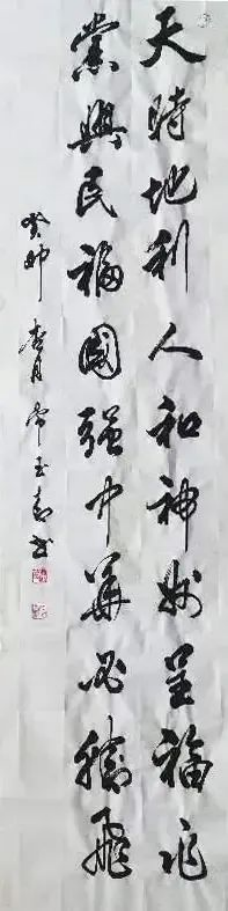 天時地利人和神州呈福兆
黨興民福國强中華必騰飛
癸卯杏月常玉書